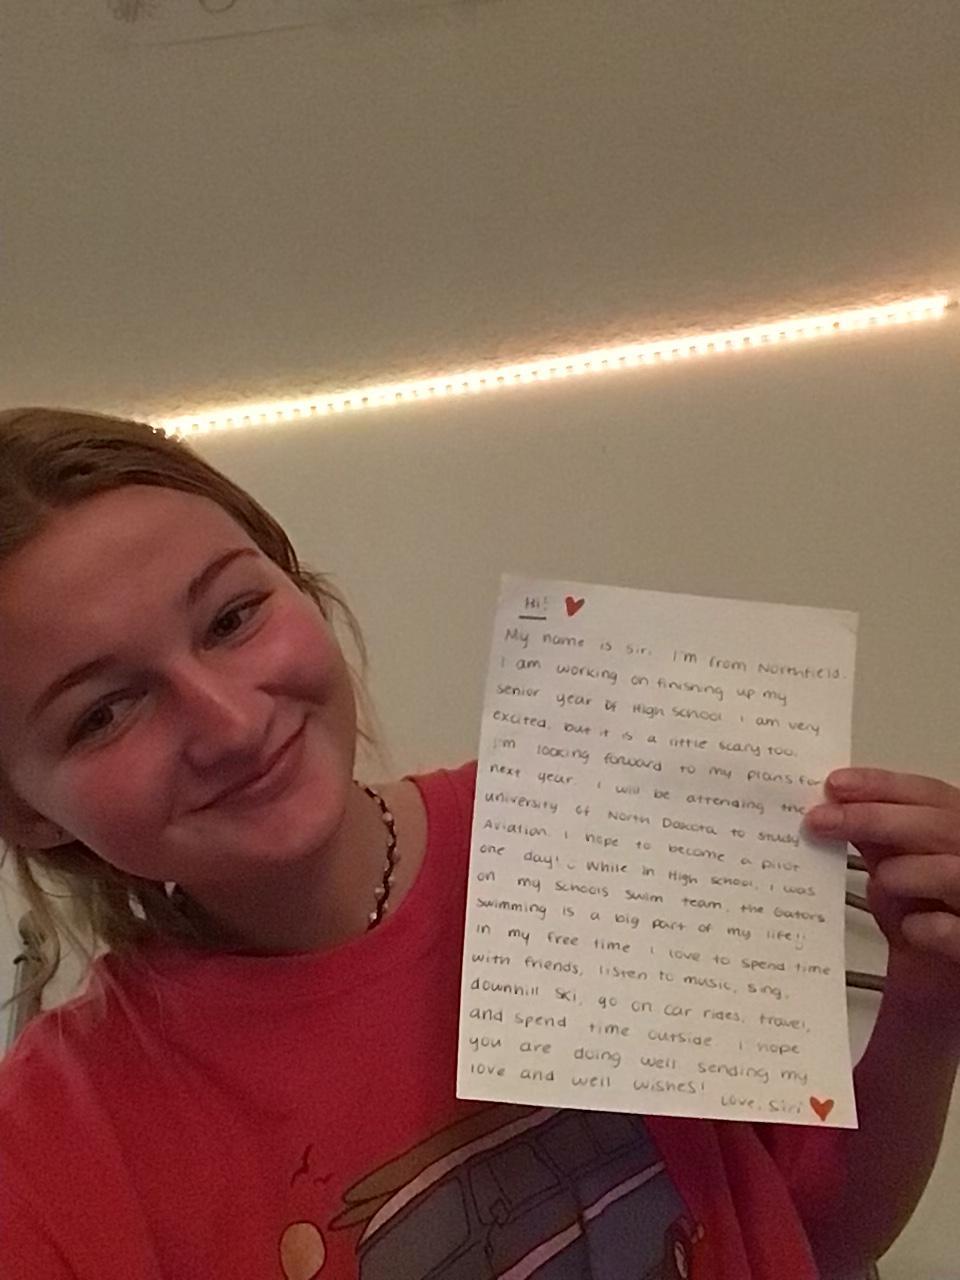 Hi!
My name is Siri. I'm from Northfield.
I am working on finishing up my
senior year of High school. I am very
excited, but it is a little scary too.
I'm looking forward to my plans for
next year. I will be attending the
university of North Dakota to study
Aviation. I hope to become a pilot
one day! While in High school, I was
on my schools swim team, the Gators
swimming is a big part of my life!!
In my free time I love to spend time
with friends, listen to music, sing,
downhill ski, go on car rides, travel,
and spend time outside. I hope
you are doing well. sending my
love and well wishes!
Love, Siri